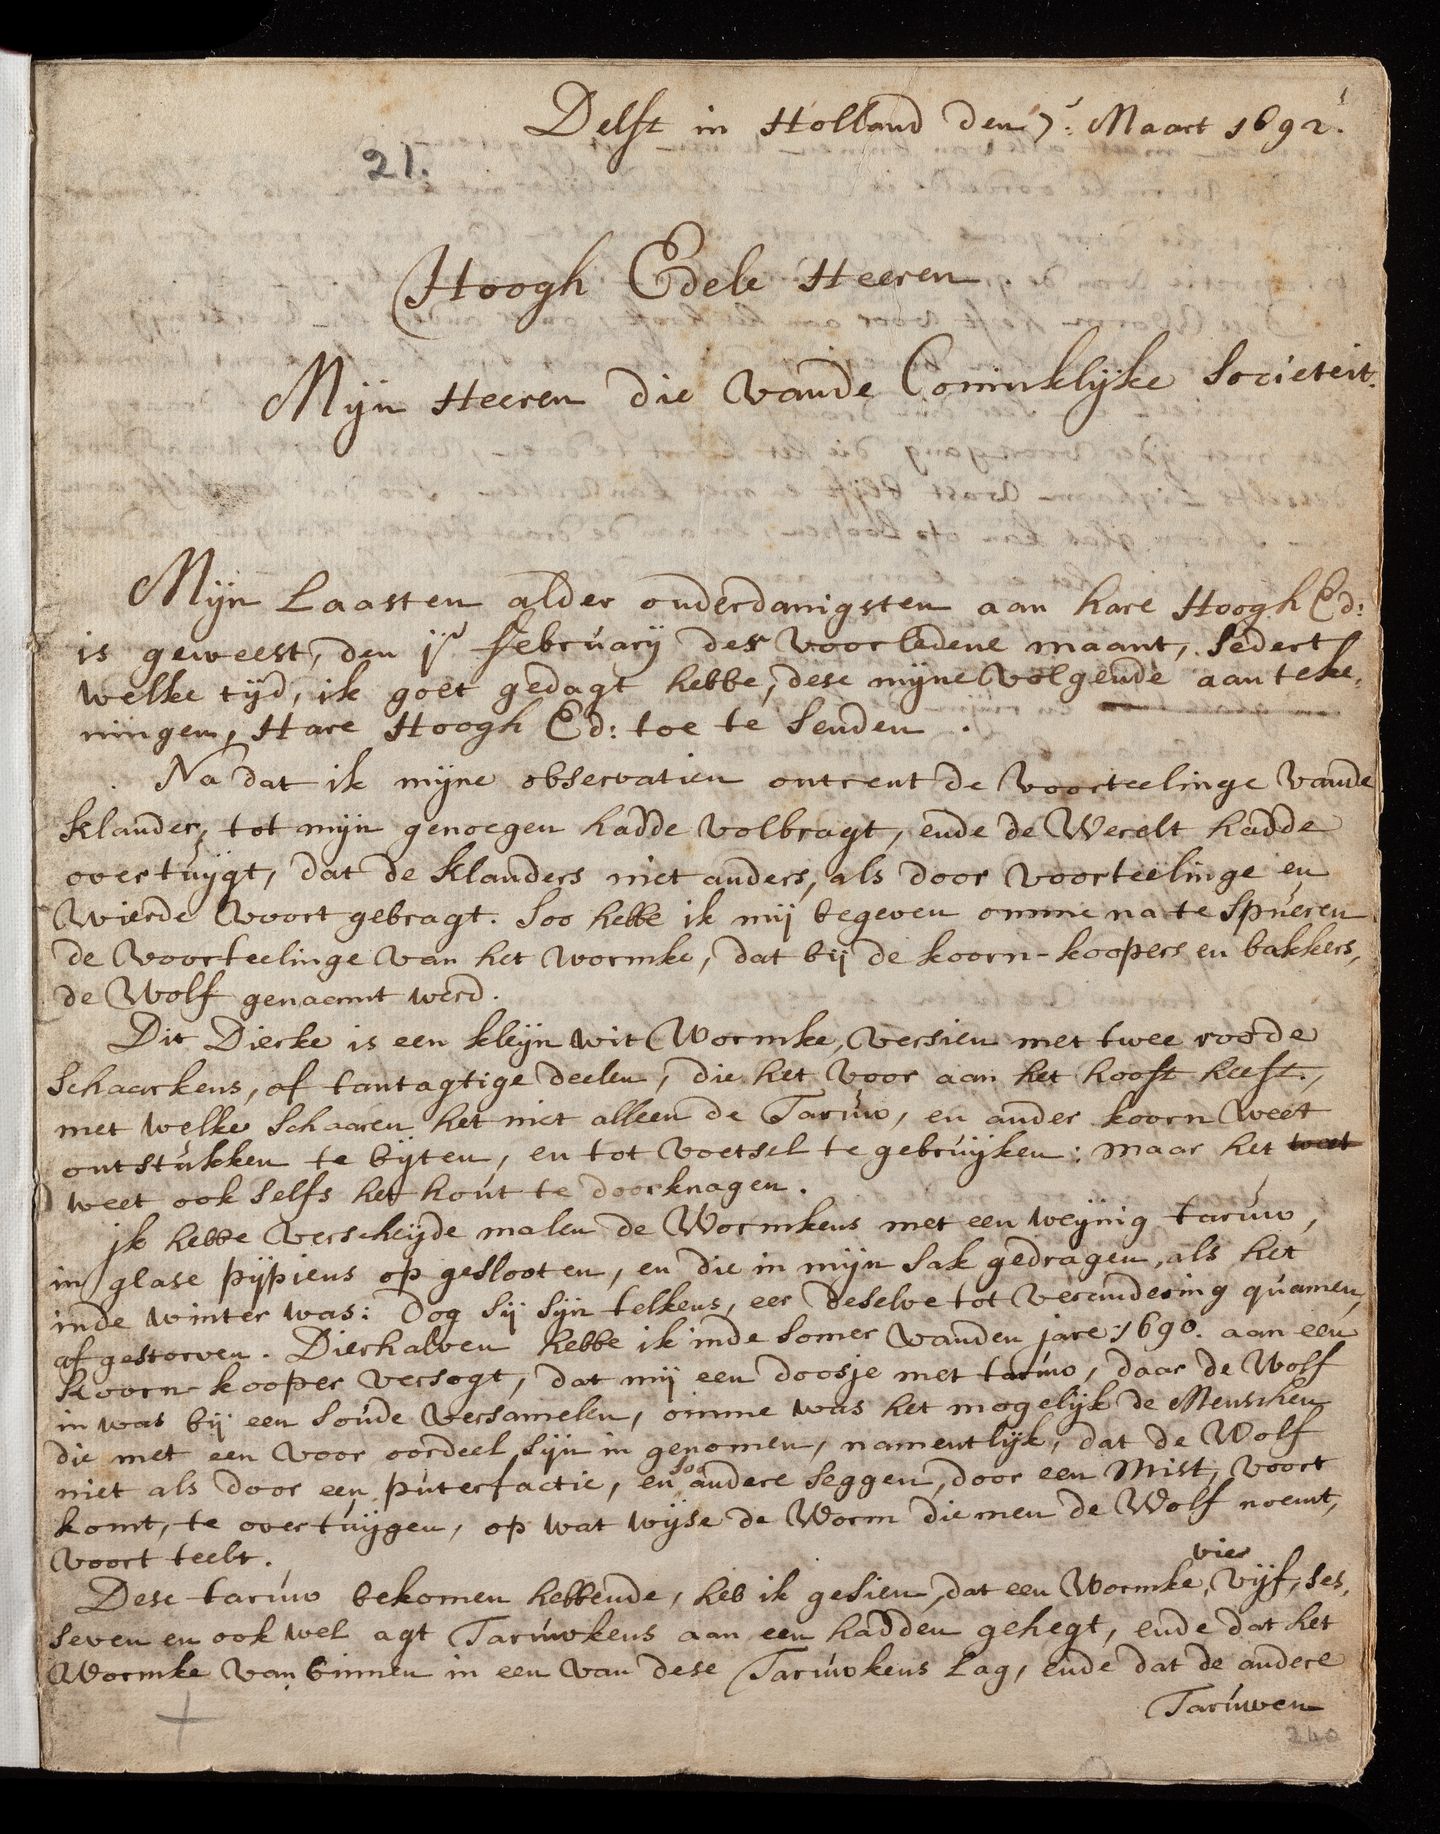 Delft in Holland den 7e: Maart 1692.
21.
Hoogh Edele Heeren
Mijn Heeren die vande Coninklijke Societeit.
Mijn Laasten alder onderdanigsten aan hare Hoogh Ed:
is geweest, den 1e february des voorledene maant, sedert
welke tijd, ik goet gedagt hebbe, dese mijne volgende aanteke-
ningen, Hare Hoogh Ed: toe te senden.
Na dat ik mijne observatien ontrent de voorteelinge vande
klander, tot mijn genoegen hadde volbragt, ende de Werelt hadde
overtuijgt, dat de klanders niet anders, als door voorteelinge en
wierde voort gebragt. Soo hebbe ik mij begeven omme na te spueren
de voorteelinge van het wormke, dat bij de koorn-koopers en bakkers,
de Wolf genaemt werd.
Dit Dierke is een kleijn wit Wormke, versien met twee roode
schaarkens, of tantagtige deelen, die het voor aan het hooft heeft,
met welke schaaren het niet alleen de Taruw, en ander koorn weet
ontstukken te bijten, en tot voetsel te gebruijken: maar het weet
weet ook selfs het hout te doorknagen.
jk hebbe verscheijde malen de Wormkens met een weijnig taruw,
in glase pijpiens op geslooten, en die in mijn sak gedragen, als het
inde winter was: Dog sij sijn telkens, eer deselve tot verandering quamen,
af gestorven. Dierhalven hebbe ik inde somer vanden jare 1690. aan een
koorn-kooper versogt, dat mij een doosje met taruw, daar de Wolf
in was bij een soude versamelen, omme was het mogelijk de Menschen
die met een voor oordeel sijn in genomen, namentlijk, dat de Wolf
niet als door een puterfactie, en soo andere seggen, door een Mist, voort
komt, te overtuijgen, op wat wijse de Worm die men de Wolf noemt,
voort teelt.
Dese taruw bekomen hebbende, heb ik gesien, dat een Wormke, vier vijf, ses,
seven en ook wel agt Taruwkens aan een hadden gehegt, ende dat het
Wormke van binnen in een van dese Taruwkens lag, ende dat de andere
Taruwen
240